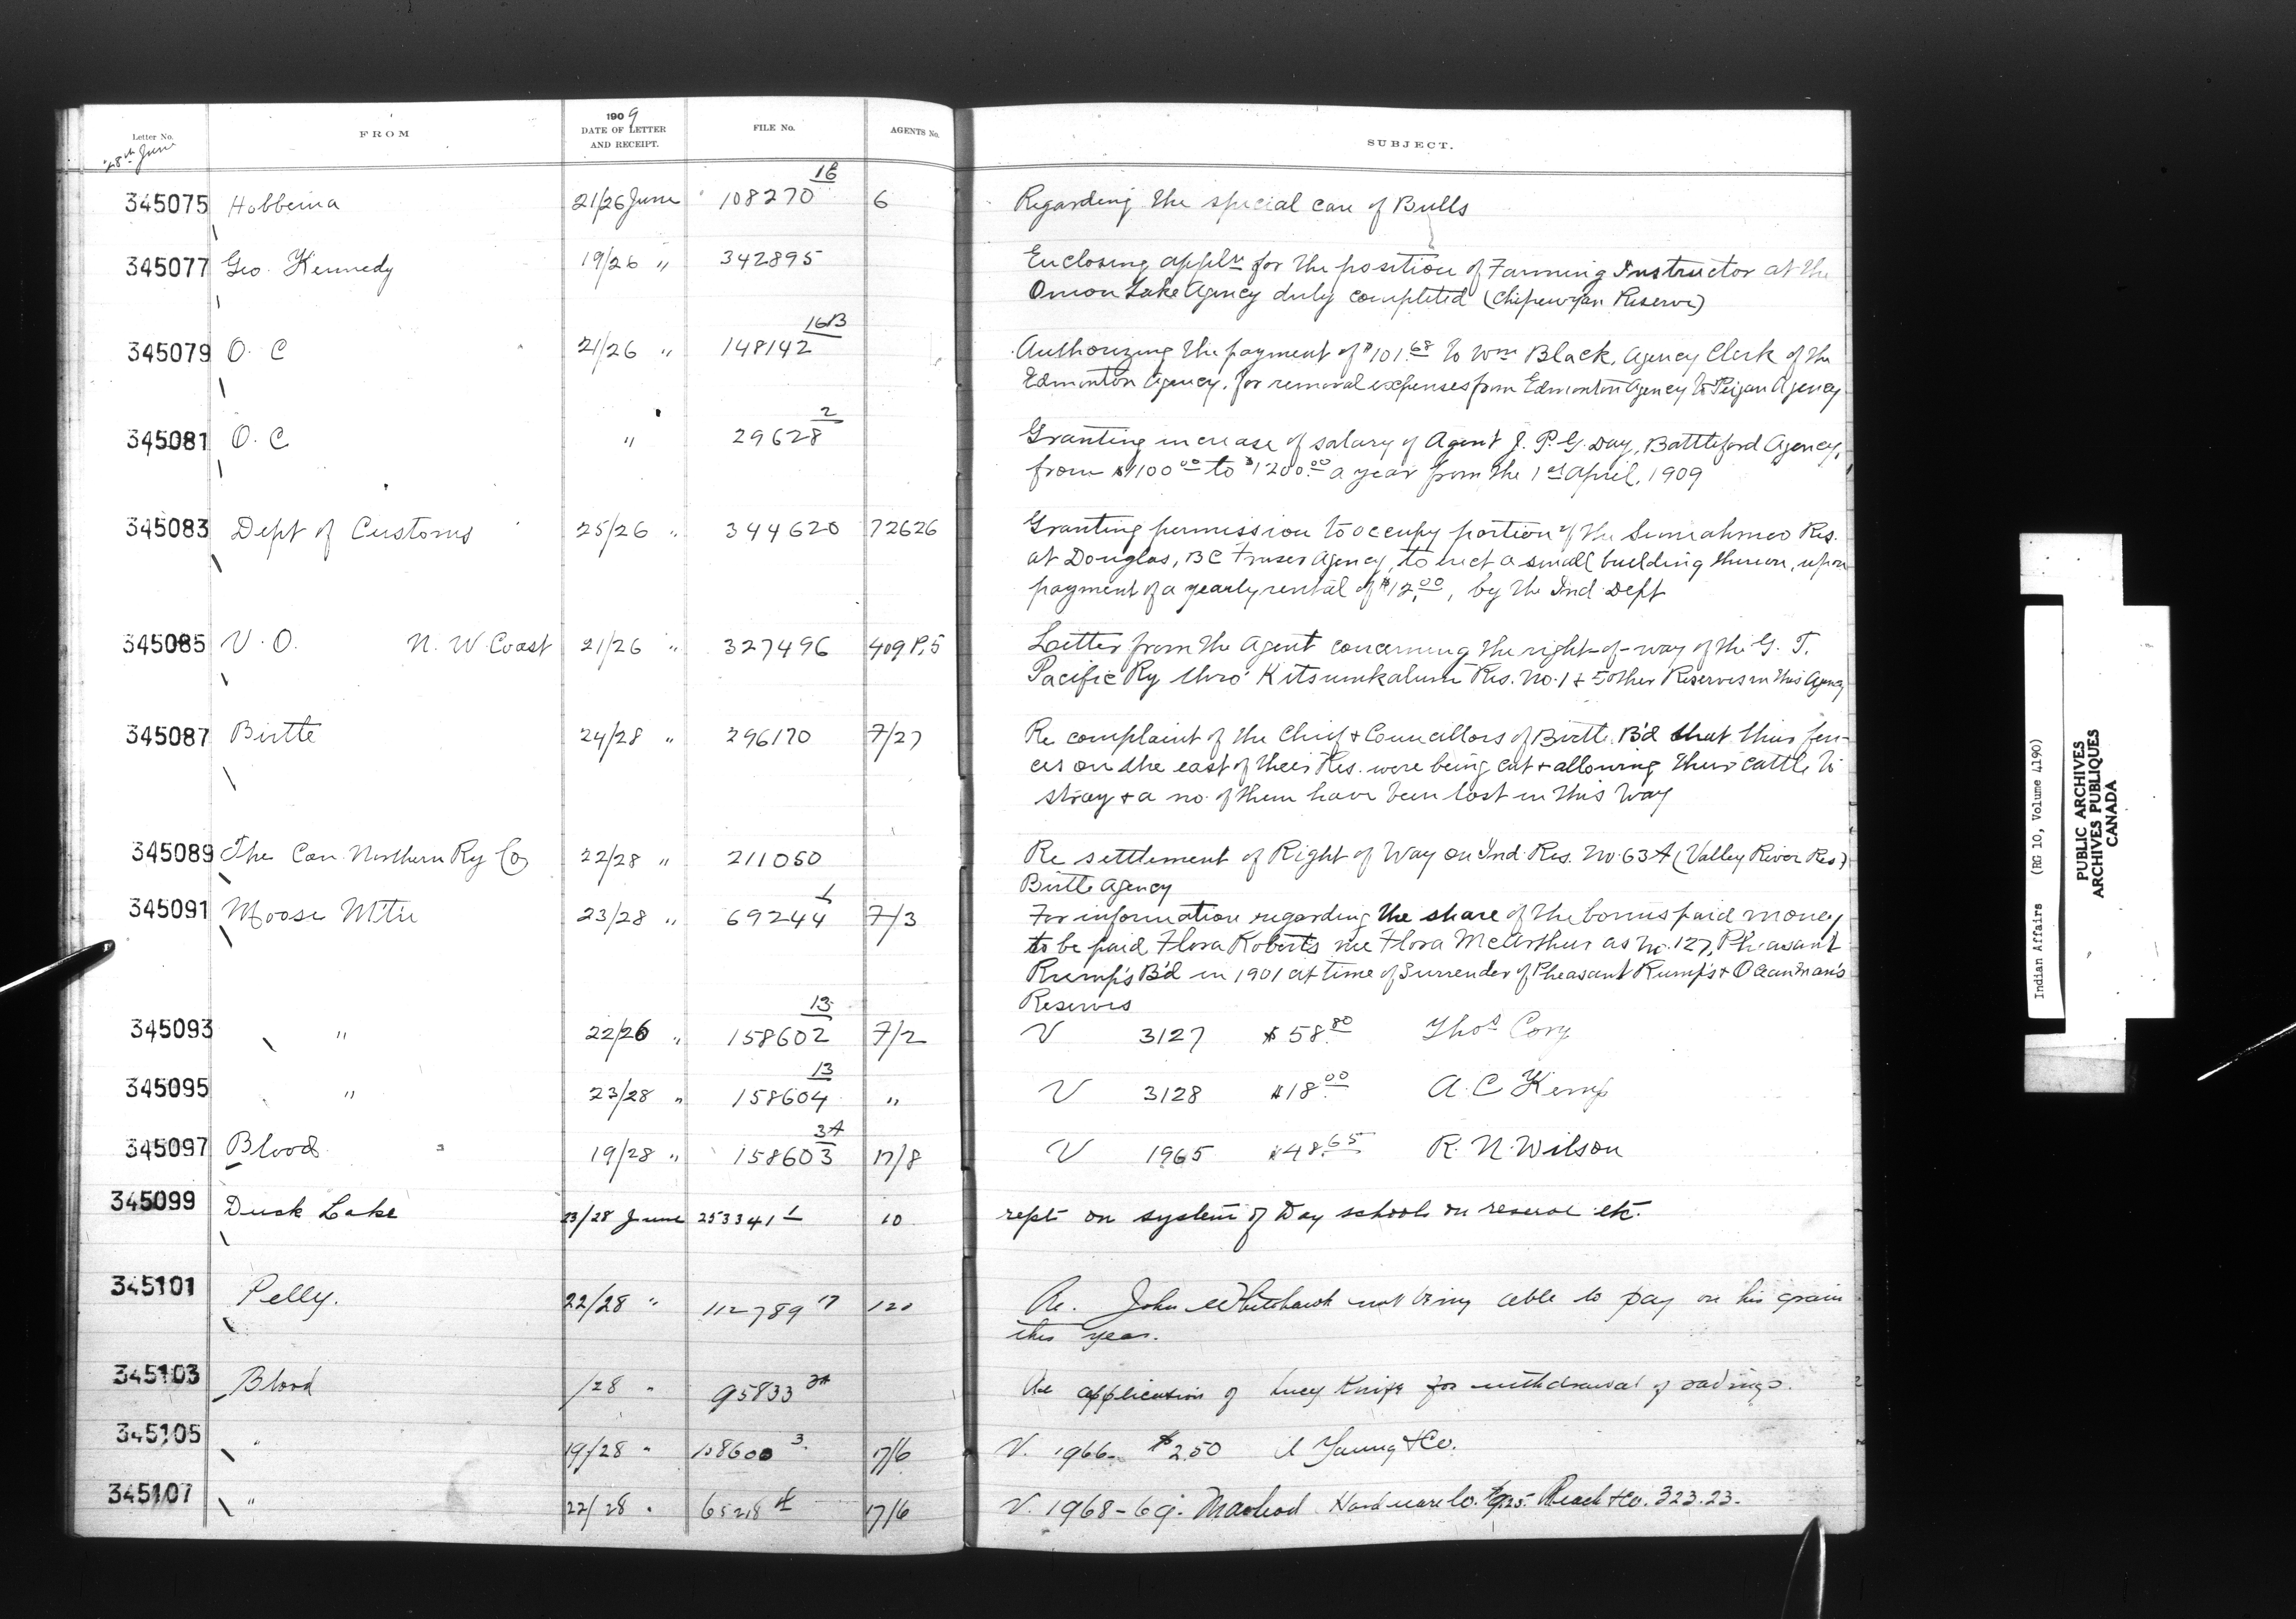 Letter No. FROM 1909 DATE OF LETTER AND RECEIPT. FILE No. AGENTS No. SUBJECT.
28th June
345075 Hobbema 21/26 June 108270 16 6 Regarding the special care of Bulls
345077 Geo. Kennedy 19/26 " 342895 Enclosing appln for the position of Farming Instructor at the
Onion Lake Agency duly completed (Chipewyan Reserve)
345079 O. C 21/26 " 148142 16B Authorizing the payment of $101.68 to Wm Black, Agency Clerk of the
Edmonton Agency, for removal expenses from Edmonton Agency to Peigan Agency
345081 O. C " 29628 2 Granting increase of salary of Agent J. P. G. Day, Battleford Agency,
from $1100.00 to $1200.00 a year from the 1st April, 1909
345083 Dept of Customs 25/26 " 344620 72626 Granting permission to occupy portion of the Semiahmoo Res.
at Douglas, BC Fraser Agency, to erect a small building thereon, upon
payment of a yearly rental of $12.00, by the Ind Dept
345085 V. O. N. W. Coast 21/26 " 327496 409 P.5 Letter from the Agent concerning the right-of-way of the G. T.
Pacific Ry thro' Kitsumkalum Res. No. 1 + 5 other Reserves in this Agency
345087 Birtle 24/28 " 296170 7/27 Re complaint of the Chief + Councillors of Birtle B'd that their fen-
ces on the east of their Res. were being cut + allowing their cattle to
stray + a no. of them have been lost in this way
345089 The Can. Northern Ry Co 22/28 " 211050 Re settlement of Right of Way on Ind. Res. No. 63A (Valley River Res)
Birtle Agency
345091 Moose M'tn 23/28 " 69244 1 7/3 For information regarding the share of the bonus paid money
to be paid Flora Roberts nee Flora McArthur as No. 127, Pheasant
Rump's B'd in 1901 at time of Surrender of Pheasant Rump's + Ocean Man's
Reserves
345093 " 22/26 " 158602 13 7/2 V 3127 $58.80 Thos Cory
345095 " 23/28 " 158604 13 " V 3128 $18.00 A. C Kemp
345097 Blood 19/28 " 158603 3A 17/8 V 1965 $48.65 R. N. Wilson
345099 Duck Lake 23/28 June 253341 1 10 rept on system of Day schools on reserve etc.
345101 Pelly. 22/28 " 112789 17 120 Re. John Whitehawk not being able to pay on his grain
this year.
345103 Blood /28 " 95833 Re application of Lucy Knife for withdrawal of savings.
345105 " 19/28 " 158600 3 17/6 V. 1966 $2.50 Young + Co.
345107 " 22/28 " 17/6 V. 1968-69. Macleod Hardware Co. Reach + Co. 323.23.
Indian Affairs (RG 10, Volume 4190)
PUBLIC ARCHIVES
ARCHIVES PUBLIQUES
CANADA